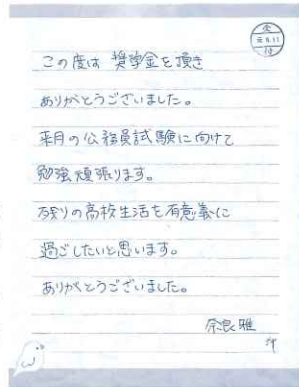 受
元.6.11
付
この度は 奨学金を頂き
ありがとうございました。
来月の公務員試験に向けて
勉強頑張ります。
残りの高校生活も有意義に
過ごしたいと思います。
ありがとうございました。
奈良 雅